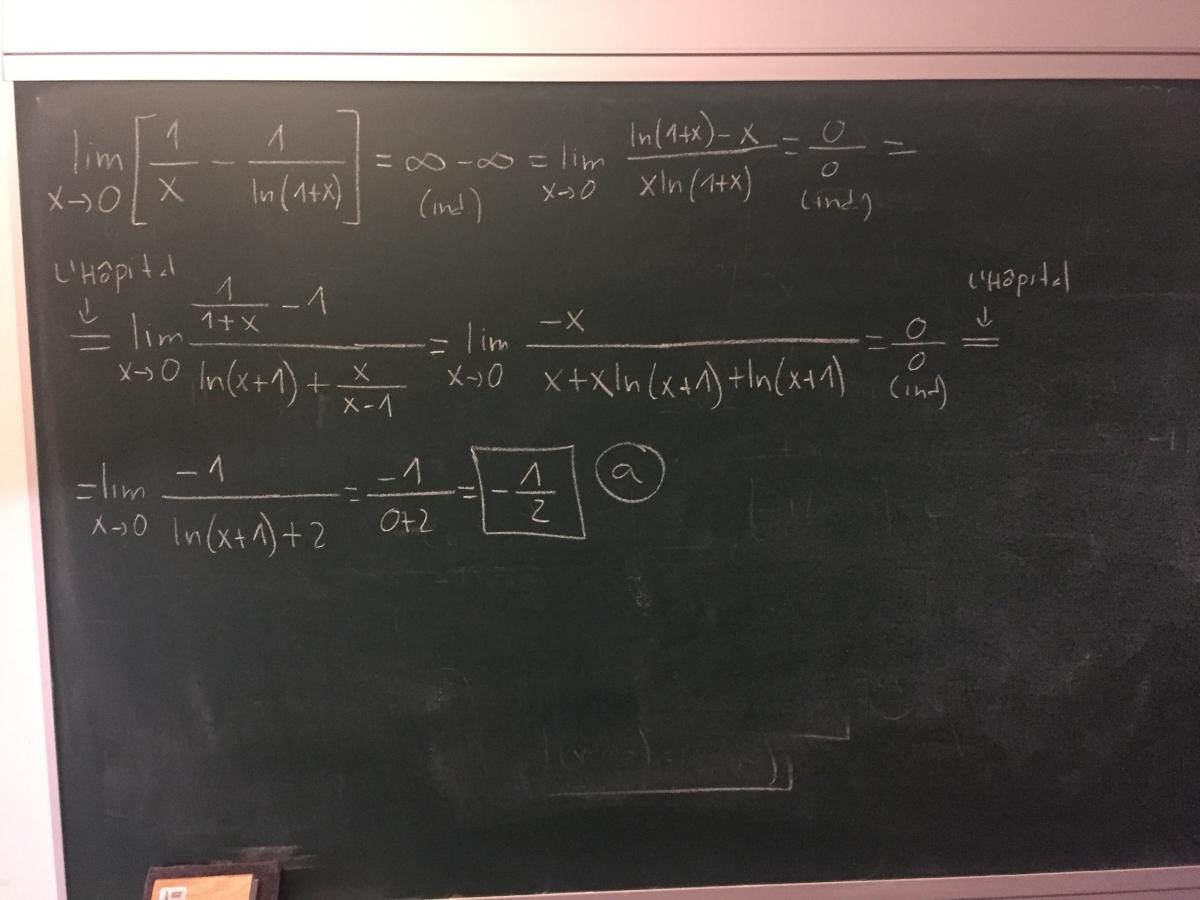 lim x→0 [1/x - 1/ln(1+x)] = ∞ - ∞ (ind) = lim x→0 (ln(1+x) - x)/(x ln(1+x)) = 0/0 (ind) =
L'Hôpital ↓ = lim x→0 (1/(1+x) - 1)/(ln(x+1) + x/(x-1)) = lim x→0 -x/(x+x ln(x+1)+ln(x+1)) = 0/0 (ind) L'Hôpital ↓ =
= lim x→0 -1/(ln(x+1)+2) = -1/(0+2) = -1/2 a